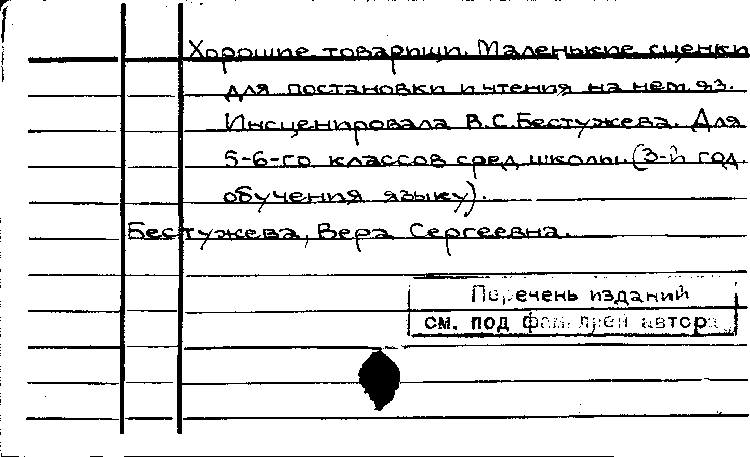 Хорошие товарищи. Маленькие сценки
для постановки и чтения на нем.яз.
Инсценировала В.С.Бестужева. Для
5-6-го классов сред.школы. (3-й год
обучения языку).
Бестужева, Вера Сергеевна.
Перечень изданий
см. под фамилией автора